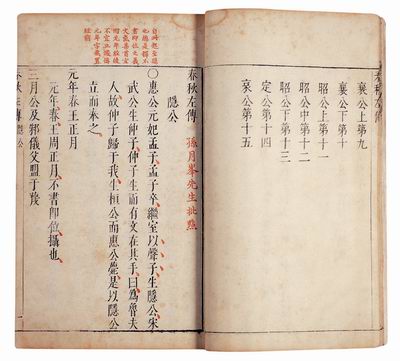 襄公上第九
襄公下第十
昭公上第十一
昭公中第十二
昭公下第十三
定公第十四
哀公第十五
春秋左傳 孫月峯先生批點
隱公
○惠公元妃孟子孟子卒繼室以聲子生隱公宋
武公生仲子仲子生而有文在其手曰為魯夫
人故仲子歸于我生桓公而惠公薨是以隱公
立而奉之
元年春王正月
元年春王周正月不書即位攝也
三月公及邾儀父盟于蔑